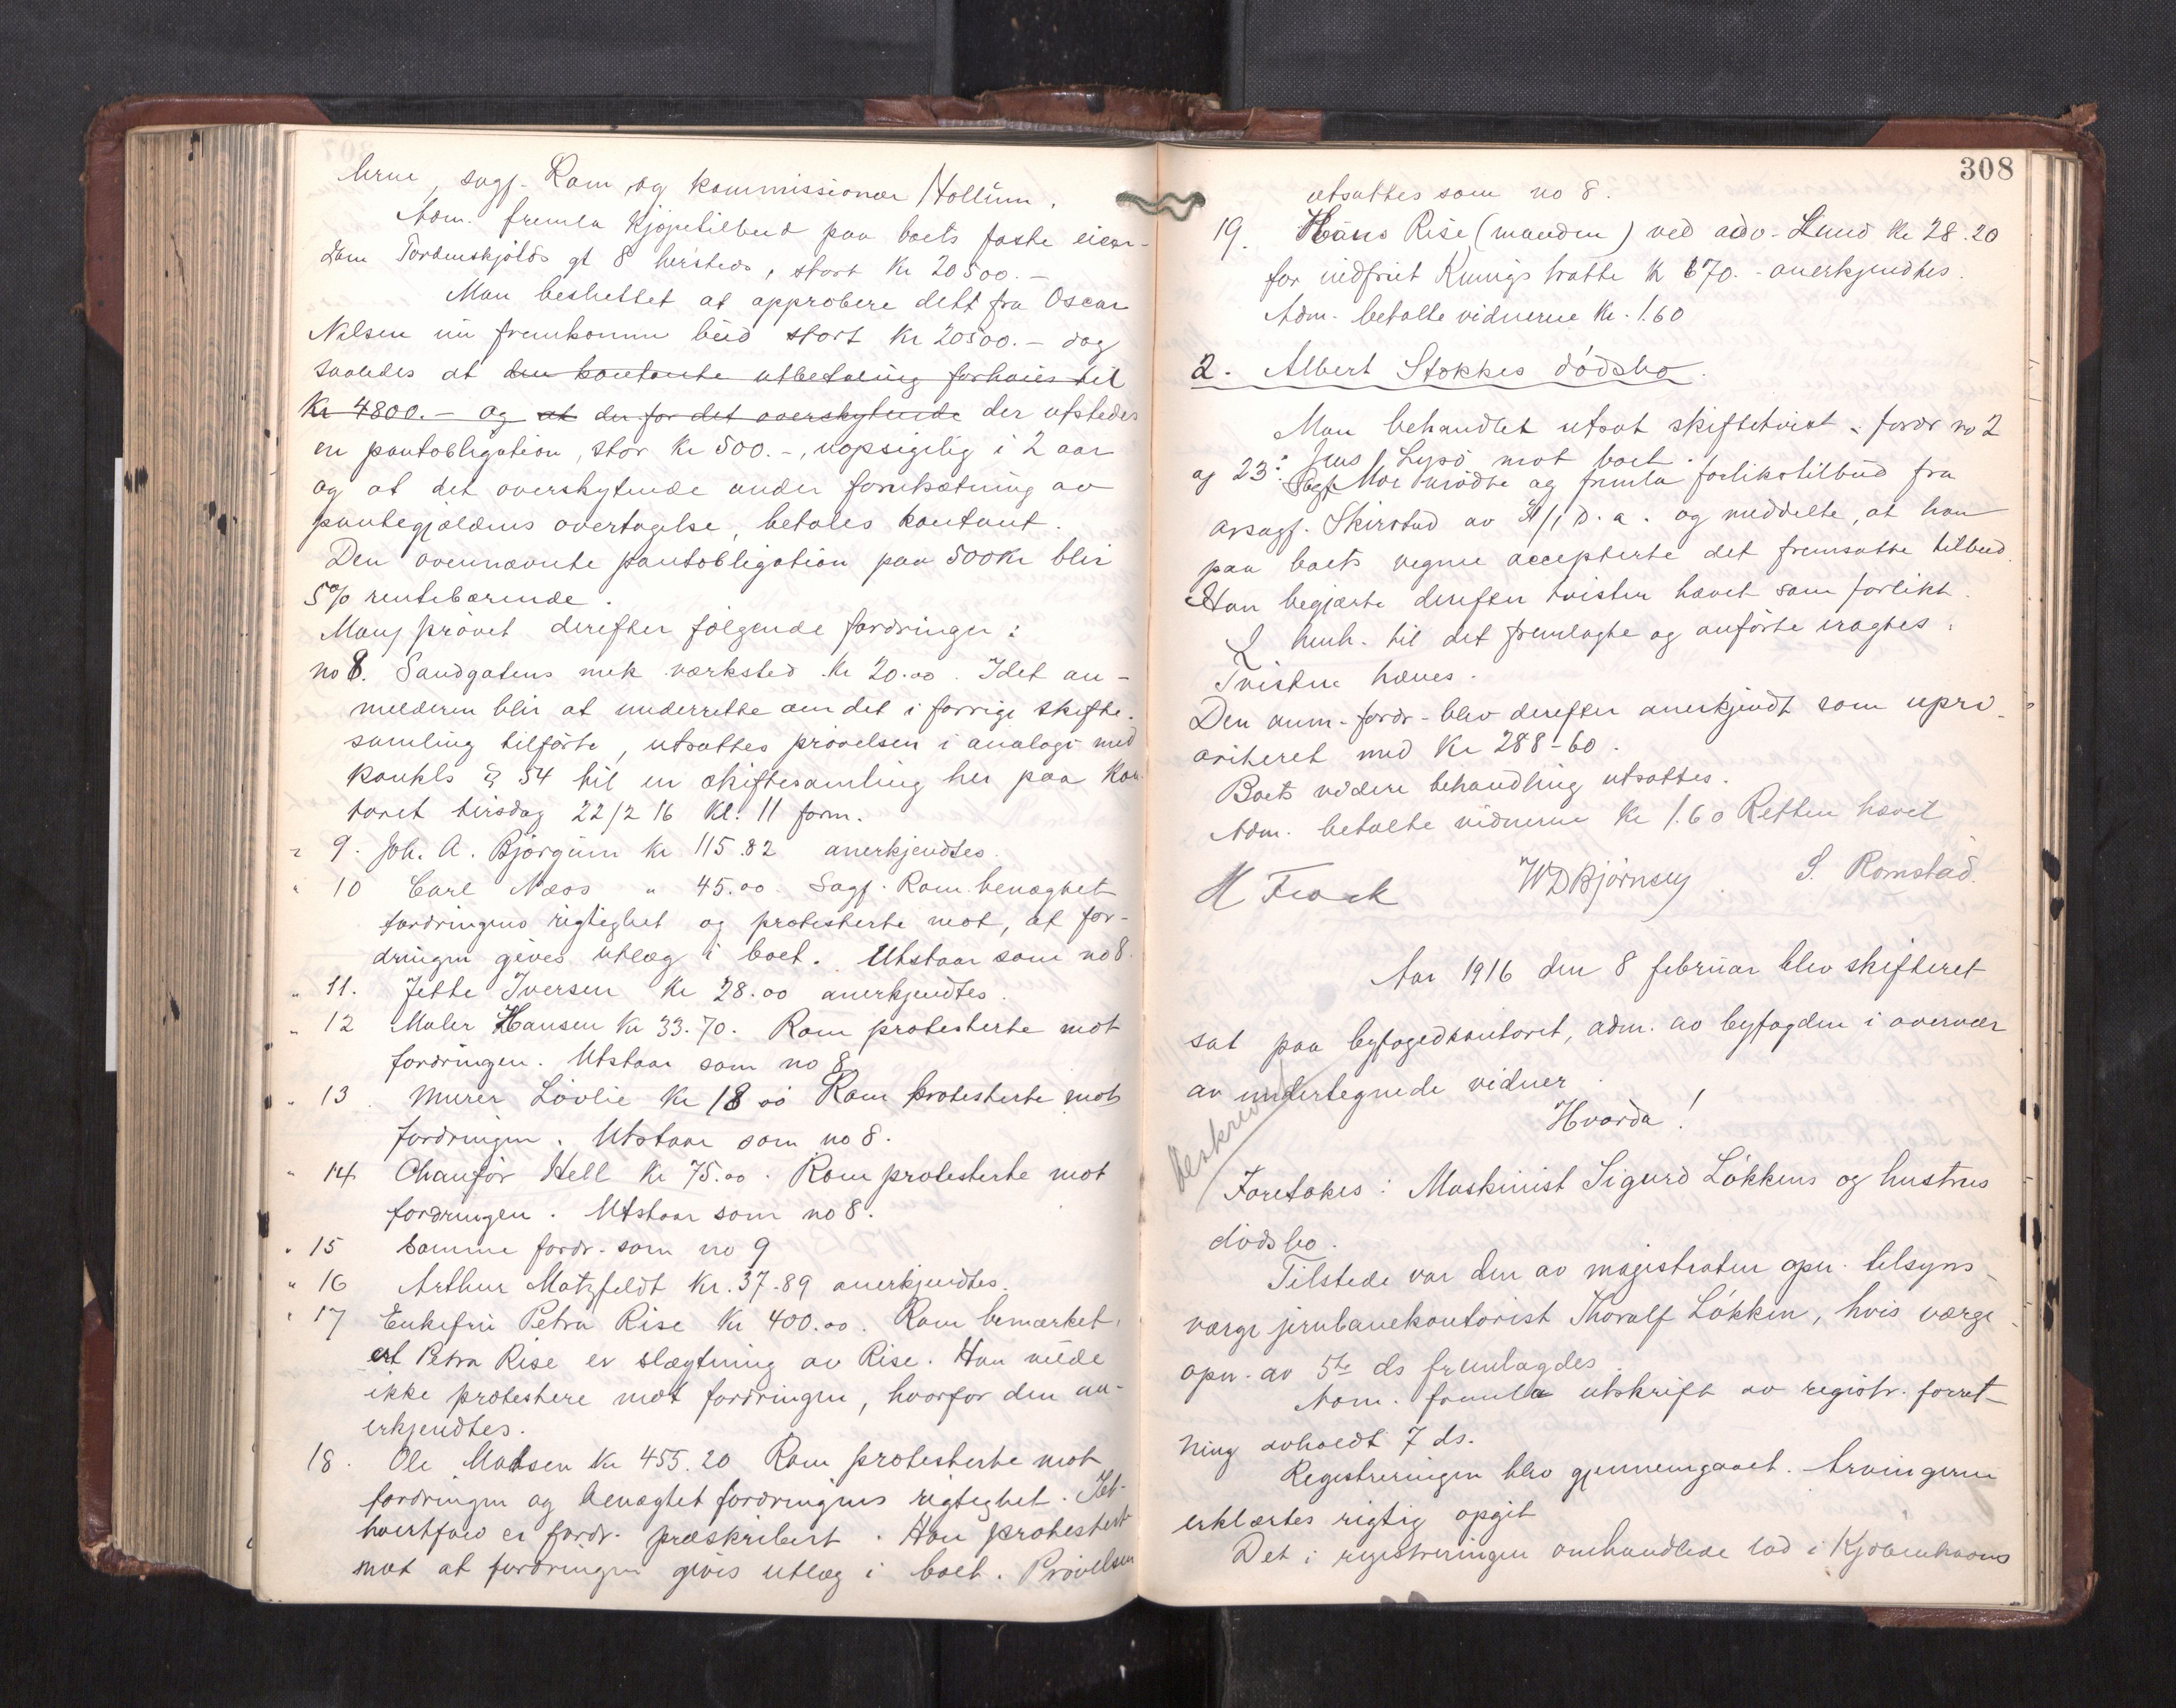 lerne, sagf. Ram og kommissionær Hollum.
Adm. fremla kjøpetilbud paa boets faste eien-
dom Tordenskjolds gt 8 hersteds, stort kr 20500.-
Man besluttet at approbere dett fra Oscar
Nilsen nu fremkomne bud stort kr 20500.- dog
saaledes at den kontante utbetaling forhøies til
kr 4800.- og at der for det overskytende der utstedes
en pantobligation, stor kr 500.-, uopsigelig i 2 aar
og at det overskytende under forutsætning av
pantegjældens overtagelse, betales kontant.
Den ovennævnte pantobligation paa 500 kr blir
5% rentebærende.
Man prøvet derefter følgende fordringer:
no 8. Sandgatens mek værksted kr 20.00. Idet an-
melderen blir at underrette om det i forrige skifte-
samling tilførte, utsattes prøvelsen i analogi med
konkls § 54 til en skiftesamling her paa kon-
toret tirsdag 22/2 16 kl. 11 form.
" 9. Joh. A. Bjørgum kr 115.82 anerkjendtes.
" 10 Carl Næss " 45.00 Sagf. Ram benægtet
fordringens rigtighet og protesterte mot, at for-
dringen gives utlæg i boet. Utstaar som no 8.
" 11. Jette Iversen kr 28.00 anerkjendtes.
" 12 Maler Hansen kr 33.70. Ram protesterte mot
fordringen. Utstaar som no 8
" 13. Murer Løvlie kr 18.00 Ram protesterte mot
fordringen. Utstaar som no 8.
" 14 Chaufør Hell kr 75.00. Ram protesterte mot
fordringen. Utstaar som no 8.
" 15 Samme fordr. som no 9
" 16 Arthur Motzfeldt kr. 37.89 anerkjendtes.
" 17 Enkefru Petra Rise kr 400.00. Ram bemærket,
at Petra Rise er slægtning av Rise. Han vilde
ikke protestere mot fordringen, hvorfor den an-
erkjendtes.
18. Ole Madsen kr 455.20 Ram protesterte mot
fordringen og benægtet fordringens rigtighet. Iet-
hvertfald er fordr. præskribert. Han protesterte
mot at fordringen gives utlæg i boet. Prøvelsen
308
utsattes som no 8.
19. Hans Rise (manden) ved adv. Lund kr 28.20
for indfriet Kunigs tratte kr 670.- anerkjendtes.
Adm. betalte vidnerne kr. 1.60
2. Albert Stokkes dødsbo.
Man behandlet utsat skiftetvist - fordr no 2
og 23: Jens Lysø mot boet.
Sagf. Moe mødte og fremla forlikstilbud fra
orsagf. Skirstad av 4/1 d.a. og meddelte, at han
paa boets vegne accepterte det fremsatte tilbud.
Han begjærte derefter tvisten hævet som forlikt.
I henh. til det fremlagte og anførte eragtes:
Tvisten hæves.
Den anm. fordr. blev derefter anerkjendt som upri-
oriteret med kr 288-60.
Boets videre behandling utsattes.
Adm. betalte vidnerne kr 1.60 Retten hævet
M Frock WDBjørnsey S. Romstad.
Aar 1916 den 8 februar blev skifteret
sat paa byfogedkontoret, adm. av byfogden i overvær
av undertegnede vidner.
Hvorda!
beskrevet
Foretokes: Maskinist Sigurd Løkkens og hustrus
dødsbo.
Tilstede var den av magistraten opn. tilsyns-
værge jernbanekontorist Thoralf Løkken, hvis værge-
opn. av 5te ds fremlagdes.
Adm. fremla utskrift av registr. forret-
ning avholdt 7 ds.
Registreringen blev gjennemgaaet. Arvingerne
erklærtes rigtig opgit
Det i registreringen omhandlede lod i Kjøbenhavns